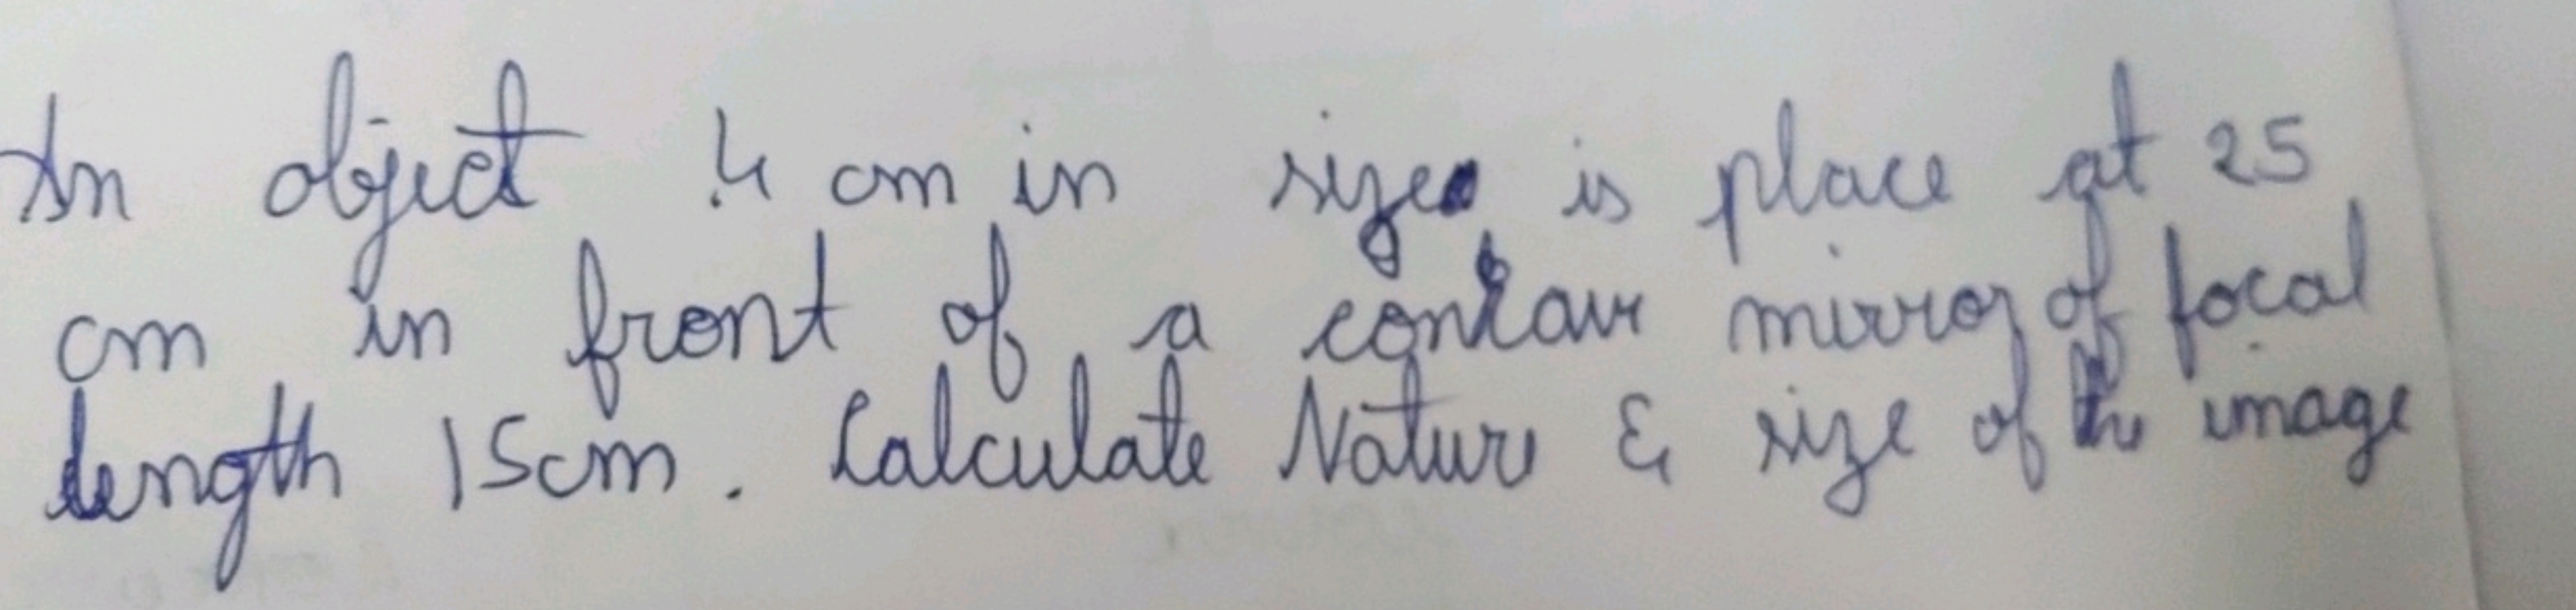 An object 4 cm in size is place at 25
cm in front of a concave mirror of focal
length 15cm. Calculate Nature & size of the image